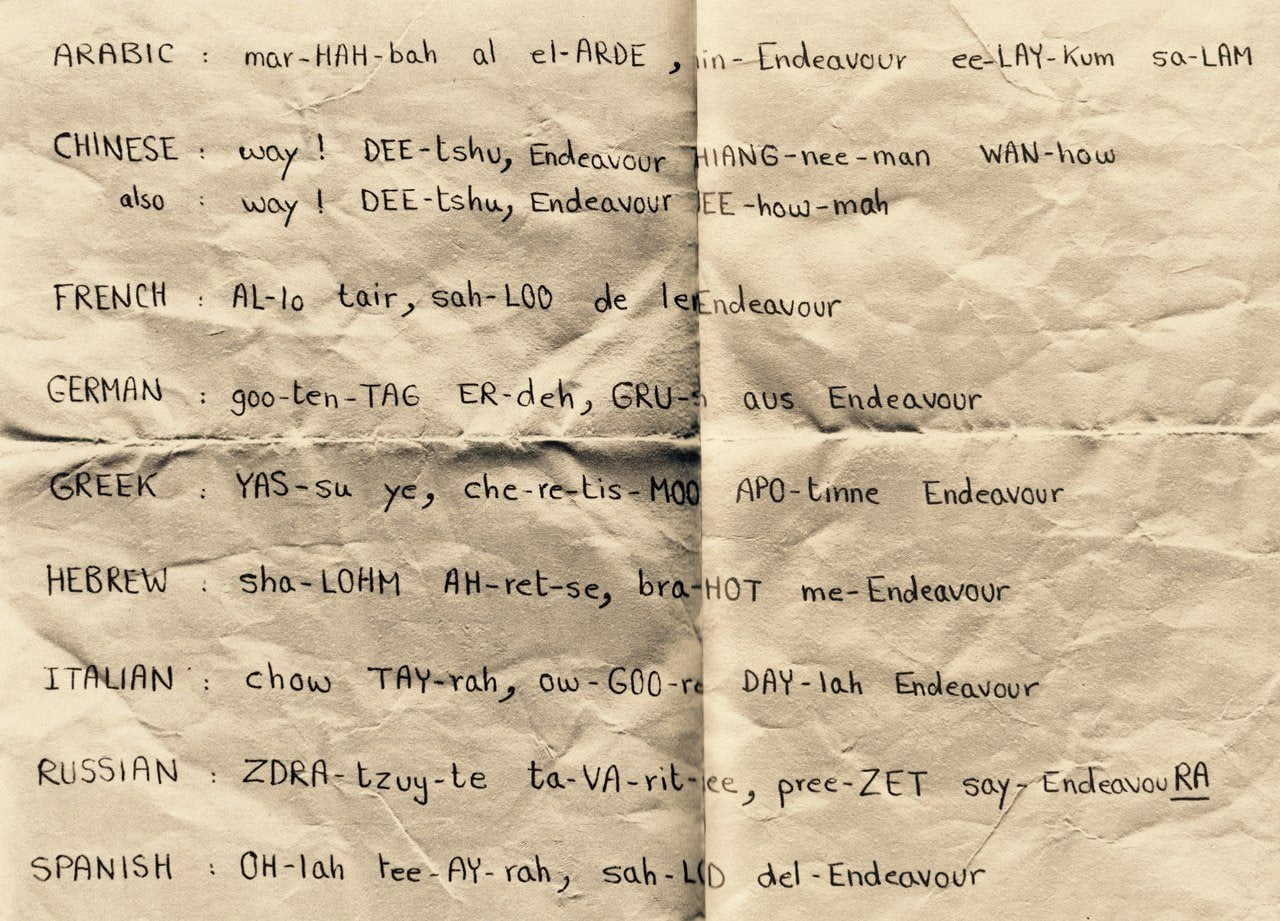 ARABIC : mar-HAH-bah al el-ARDE , in- Endeavour ee-LAY-Kum sa-LAM
CHINESE : way ! DEE-tshu, Endeavour HIANG-nee-man WAN-how
also : way ! DEE-tshu, Endeavour EE-how-mah
FRENCH : AL-lo tair, sah-LOO de ler Endeavour
GERMAN : goo-ten-TAG ER-deh, GRU-s aus Endeavour
GREEK : YAS-su ye, che-re-tis-MOO APO-tinne Endeavour
HEBREW : sha-LOHM AH-ret-se, bra-HOT me-Endeavour
ITALIAN : chow TAY-rah, ow-GOO-re DAY-lah Endeavour
RUSSIAN : ZDRA-tzuy-te ta-VA-rit-ee, pree-ZET say-EndeavouRA
SPANISH : OH-lah tee-AY-rah, sah-LOO del-Endeavour